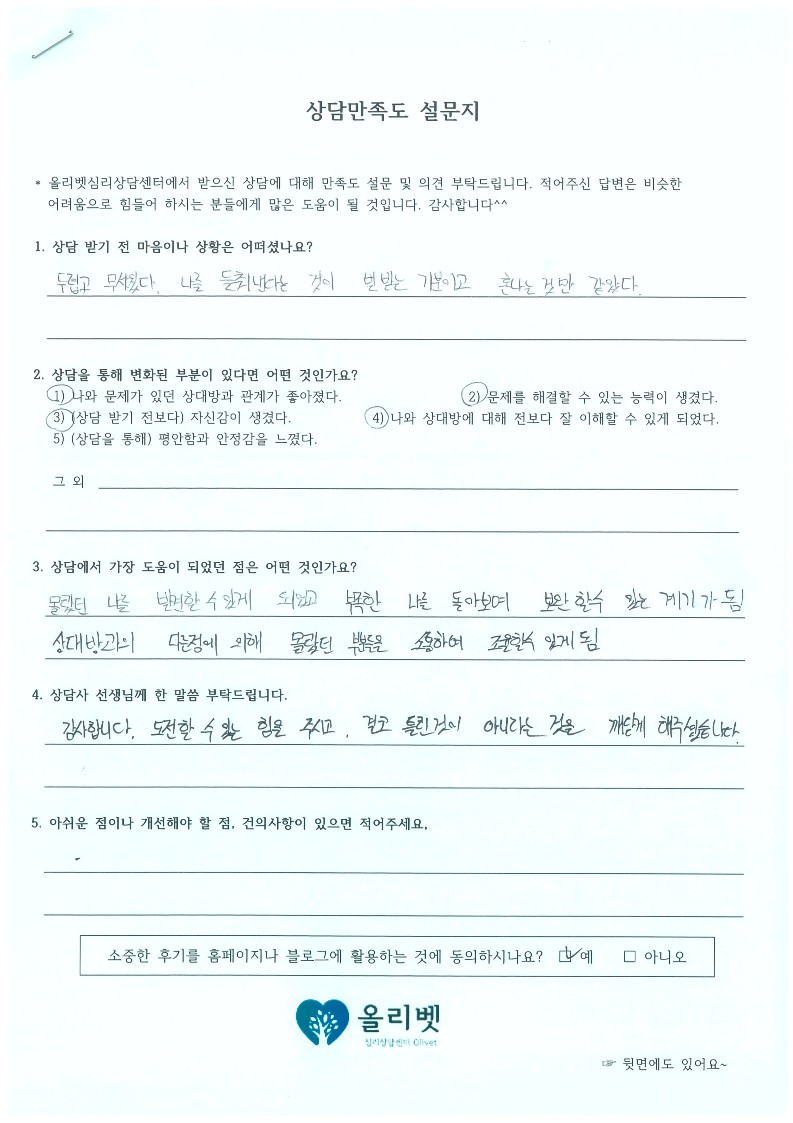 상담만족도 설문지
* 올리벳심리상담센터에서 받으신 상담에 대해 만족도 설문 및 의견 부탁드립니다. 적어주신 답변은 비슷한
어려움으로 힘들어 하시는 분들에게 많은 도움이 될 것입니다. 감사합니다^^
1. 상담 받기 전 마음이나 상황은 어떠셨나요?
두렵고 무서웠다. 나를 들춰낸다는 것이 벌받는 기분이고 혼나는것만 같았다.
2. 상담을 통해 변화된 부분이 있다면 어떤 것인가요?
1) 나와 문제가 있던 상대방과 관계가 좋아졌다. 2) 문제를 해결할 수 있는 능력이 생겼다.
3) (상담 받기 전보다) 자신감이 생겼다. 4) 나와 상대방에 대해 전보다 잘 이해할 수 있게 되었다.
5) (상담을 통해) 평안함과 안정감을 느꼈다.
그 외
3. 상담에서 가장 도움이 되었던 점은 어떤 것인가요?
몰랐던 나를 발견할 수 있게 되었고 부족한 나를 돌아보며 보완 할수 있는 계기가 됨
상대방과의 다른점에 의해 몰랐던 부분을 소통하여 조율할수 있게 됨
4. 상담사 선생님께 한 말씀 부탁드립니다.
감사합니다. 도전할 수 있는 힘을 주시고, 결코 틀린것이 아니라는 것을 깨닫게 해주셨습니다.
5. 아쉬운 점이나 개선해야 할 점, 건의사항이 있으면 적어주세요.
-
소중한 후기를 홈페이지나 블로그에 활용하는 것에 동의하시나요? ☑ 예 □ 아니오
올리벳
심리상담센터 Olivet
☞ 뒷면에도 있어요~